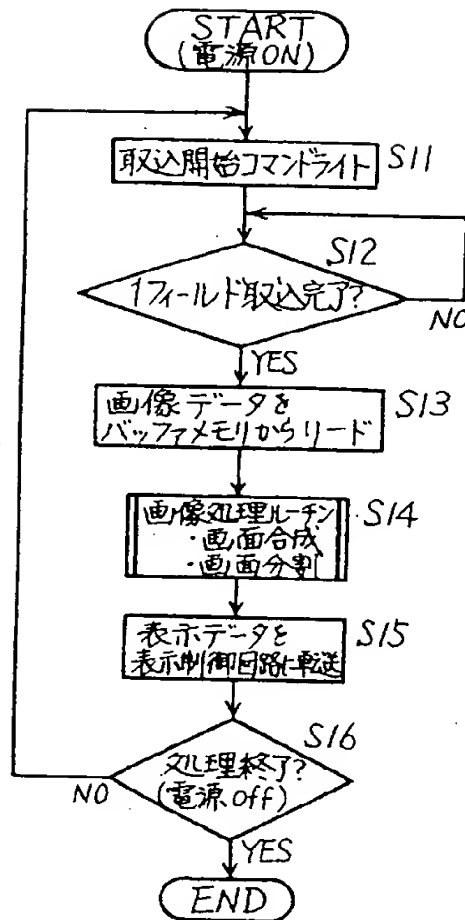 START
(電源ON)
取込開始コマンドライト
S11
S12
1フィールド取込完了?
NO
YES
画像データを
バッファメモリからリード
S13
画像処理ルーチン
・画面合成
・画面分割
S14
表示データを
表示制御回路に転送
S15
S16
処理終了?
(電源off)
NO
YES
END